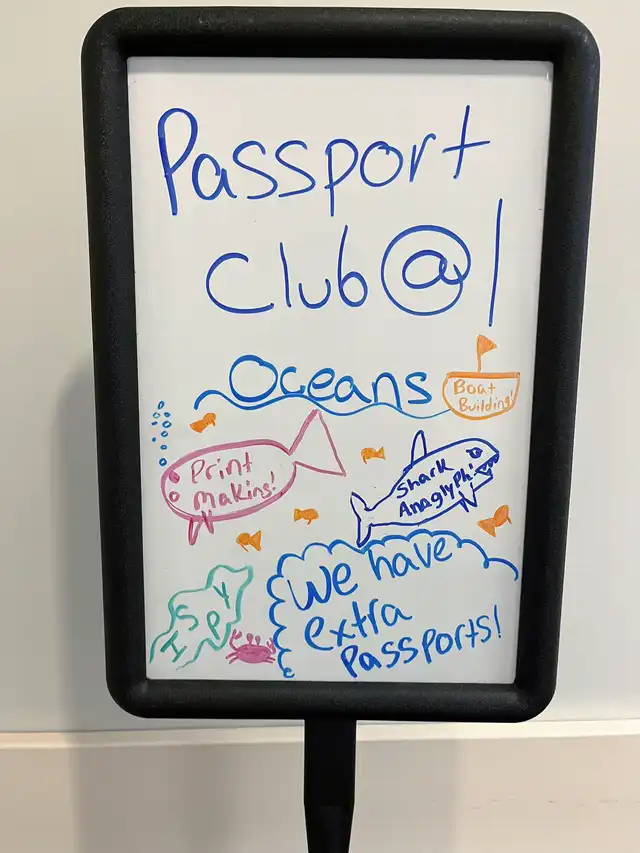 Passport
Club @ 1
Oceans
Boat
Building!
Print
making!
Shark
Anaglyph!
I SPY
We have
extra
Passports!